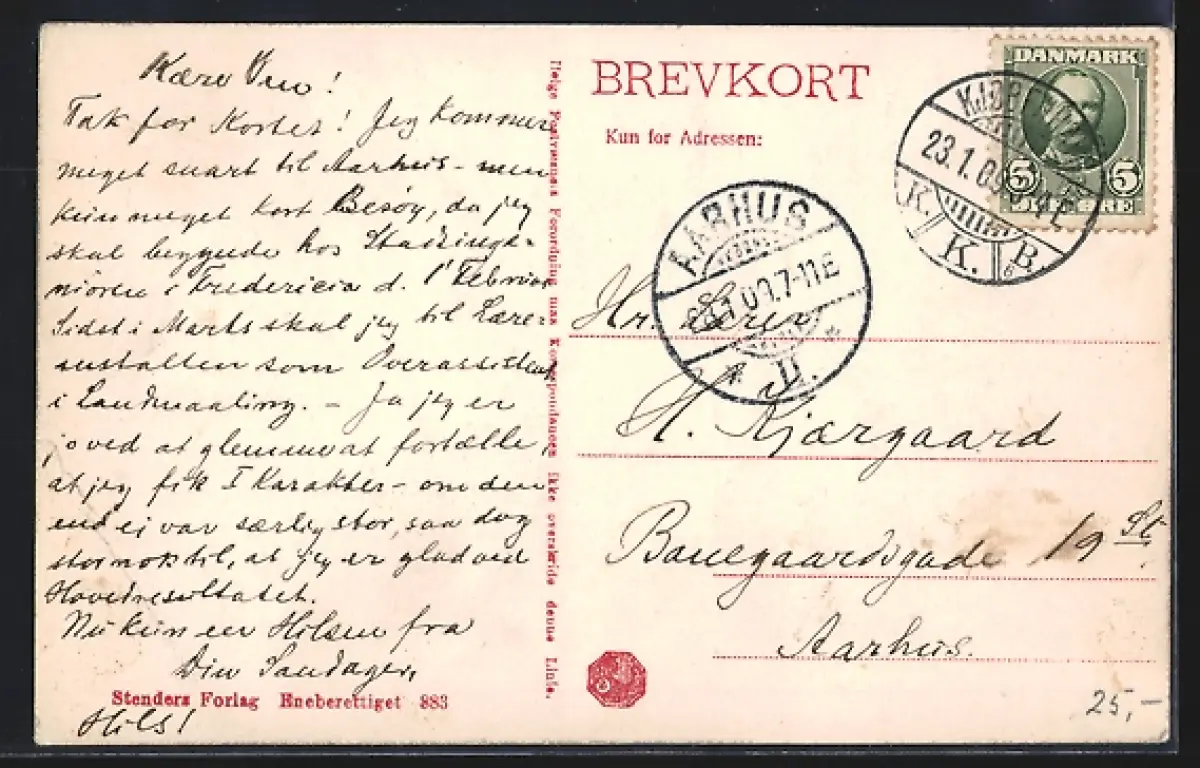 Kære Ven!
Tak for Kortet! Jeg kommer
meget snart til Aarhus - men
kun meget kort Besøg, da jeg
skal begynde hos Stadsinge-
niøren i Fredericia d. 1' Februar
Sidst i Marts skal jeg til Lære-
anstalten som Overassistent
i Landmaaling. - Ja jeg er
jo ved at glemme at fortælle,
at jeg fik I Karakter - om den
end ej var særlig stor, saa dog
stor nok til, at jeg er glad ved
Hovedresultatet.
Nu kun en Hilsen fra
Din
Stenders Forlag Eneberettiget 883
Hils!
Ifølge Postvæsenets Forordning maa Korrespondancen ikke overskride denne Linie.
BREVKORT
Kun for Adressen:
DANMARK
5 5
ØRE
KJØBENHAVN
23.1.09
K. K. B.
AARHUS
1.09.7-11E
Hr.
H. Kjærgaard
Banegaardsgade 19 St.
Aarhus.
25,-